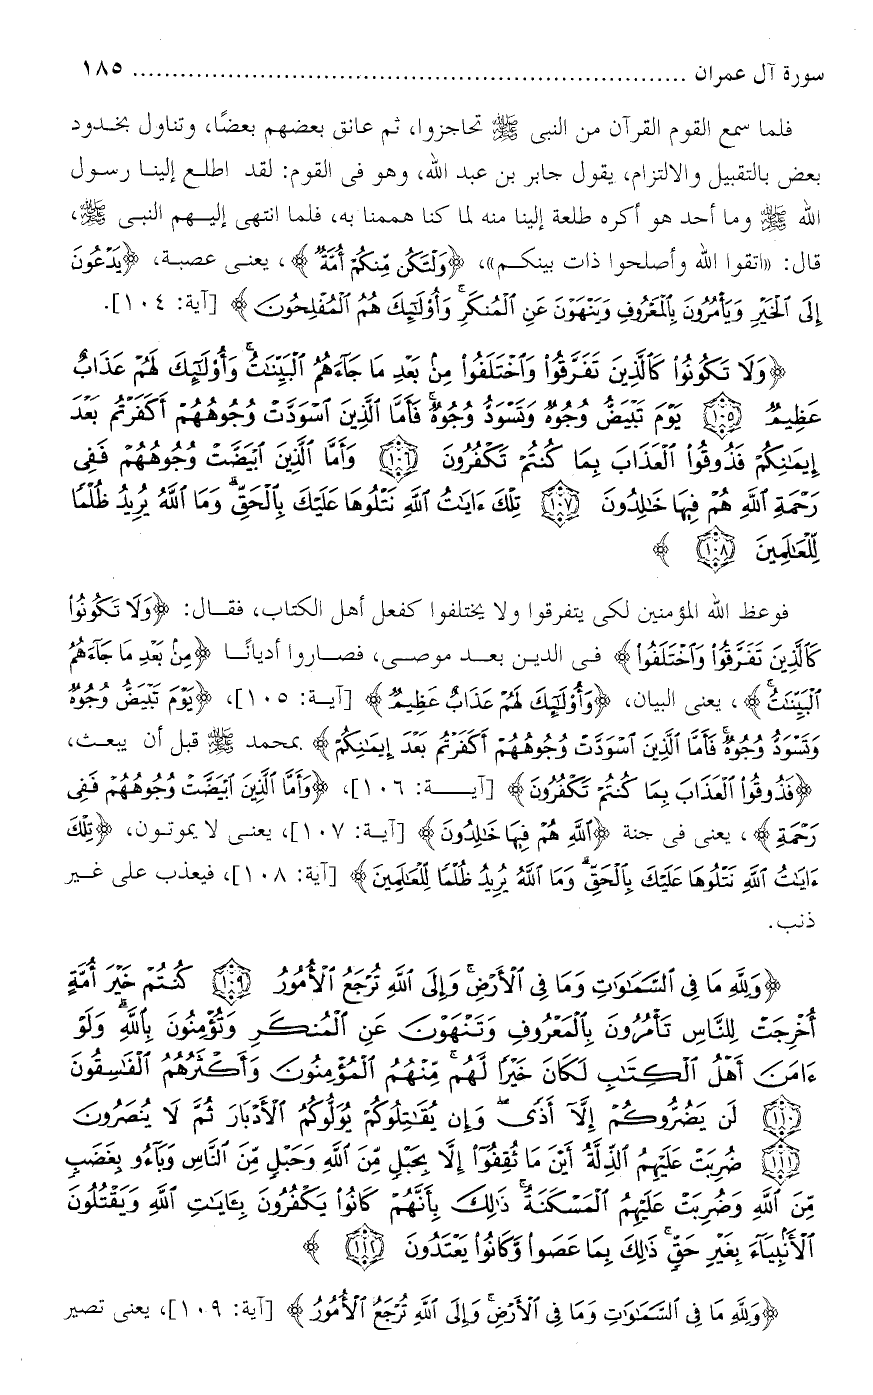 سورة آل عمران ........................................................................ ١٨٥
فلما سمع القوم القرآن من النبى ﷺ تحاجزوا، ثم عانق بعضهم بعضًا، وتناول بخدود
بعض بالتقبيل والالتزام، يقول جابر بن عبد الله، وهو فى القوم: لقد اطلع إلينا رسول
الله ﷺ وما أحد هو أكره طلعة إلينا منه لما كنا هممنا به، فلما انتهى إليهم النبى ﷺ،
قال: «اتقوا الله وأصلحوا ذات بينكم»، ﴿وَلْتَكُن مِّنكُمْ أُمَّةٌ﴾، يعنى عصبة، ﴿يَدْعُونَ
إِلَى الْخَيْرِ وَيَأْمُرُونَ بِالْمَعْرُوفِ وَيَنْهَوْنَ عَنِ الْمُنكَرِ ۚ وَأُوْلَٰٓئِكَ هُمُ الْمُفْلِحُونَ﴾ [آية: ١٠٤].
﴿وَلَا تَكُونُوا۟ كَالَّذِينَ تَفَرَّقُوا۟ وَاخْتَلَفُوا۟ مِنۢ بَعْدِ مَا جَآءَهُمُ الْبَيِّنَٰتُ ۚ وَأُوْلَٰٓئِكَ لَهُمْ عَذَابٌ
عَظِيمٌ ١٠٥ يَوْمَ تَبْيَضُّ وُجُوهٌ وَتَسْوَدُّ وُجُوهٌ ۚ فَأَمَّا الَّذِينَ اسْوَدَّتْ وُجُوهُهُمْ أَكَفَرْتُم بَعْدَ
إِيمَٰنِكُمْ فَذُوقُوا۟ الْعَذَابَ بِمَا كُنتُمْ تَكْفُرُونَ ١٠٦ وَأَمَّا الَّذِينَ ابْيَضَّتْ وُجُوهُهُمْ فَفِى
رَحْمَةِ اللَّهِ هُمْ فِيهَا خَٰلِدُونَ ١٠٧ تِلْكَ ءَايَٰتُ اللَّهِ نَتْلُوهَا عَلَيْكَ بِالْحَقِّ ۗ وَمَا اللَّهُ يُرِيدُ ظُلْمًا
لِّلْعَٰلَمِينَ ١٠٨﴾
فوعظ الله المؤمنين لكى يتفرقوا ولا يختلفوا كفعل أهل الكتاب، فقال: ﴿وَلَا تَكُونُوا۟
كَالَّذِينَ تَفَرَّقُوا۟ وَاخْتَلَفُوا۟﴾ فى الدين بعد موصى، فصاروا أديانًا ﴿مِنۢ بَعْدِ مَا جَآءَهُمُ
الْبَيِّنَٰتُ ۚ﴾، يعنى البيان، ﴿وَأُوْلَٰٓئِكَ لَهُمْ عَذَابٌ عَظِيمٌ﴾ [آية: ١٠٥]، ﴿يَوْمَ تَبْيَضُّ وُجُوهٌ
وَتَسْوَدُّ وُجُوهٌ ۚ فَأَمَّا الَّذِينَ اسْوَدَّتْ وُجُوهُهُمْ أَكَفَرْتُم بَعْدَ إِيمَٰنِكُمْ﴾ بمحمد ﷺ قبل أن يبعث،
﴿فَذُوقُوا۟ الْعَذَابَ بِمَا كُنتُمْ تَكْفُرُونَ﴾ [آية: ١٠٦]، ﴿وَأَمَّا الَّذِينَ ابْيَضَّتْ وُجُوهُهُمْ فَفِى
رَحْمَةِ﴾، يعنى فى جنة ﴿اللَّهِ هُمْ فِيهَا خَٰلِدُونَ﴾ [آية: ١٠٧]، يعنى لا يموتون، ﴿تِلْكَ
ءَايَٰتُ اللَّهِ نَتْلُوهَا عَلَيْكَ بِالْحَقِّ ۗ وَمَا اللَّهُ يُرِيدُ ظُلْمًا لِّلْعَٰلَمِينَ﴾ [آية: ١٠٨]، فيعذب على غير
ذنب.
﴿وَلِلَّهِ مَا فِى السَّمَٰوَٰتِ وَمَا فِى الْأَرْضِ ۚ وَإِلَى اللَّهِ تُرْجَعُ الْأُمُورُ ١٠٩ كُنتُمْ خَيْرَ أُمَّةٍ
أُخْرِجَتْ لِلنَّاسِ تَأْمُرُونَ بِالْمَعْرُوفِ وَتَنْهَوْنَ عَنِ الْمُنكَرِ وَتُؤْمِنُونَ بِاللَّهِ ۗ وَلَوْ
ءَامَنَ أَهْلُ الْكِتَٰبِ لَكَانَ خَيْرًا لَّهُم ۚ مِّنْهُمُ الْمُؤْمِنُونَ وَأَكْثَرُهُمُ الْفَٰسِقُونَ
١١٠ لَن يَضُرُّوكُمْ إِلَّآ أَذًى ۖ وَإِن يُقَٰتِلُوكُمْ يُوَلُّوكُمُ الْأَدْبَارَ ثُمَّ لَا يُنصَرُونَ
١١١ ضُرِبَتْ عَلَيْهِمُ الذِّلَّةُ أَيْنَ مَا ثُقِفُوٓا۟ إِلَّا بِحَبْلٍ مِّنَ اللَّهِ وَحَبْلٍ مِّنَ النَّاسِ وَبَآءُو بِغَضَبٍ
مِّنَ اللَّهِ وَضُرِبَتْ عَلَيْهِمُ الْمَسْكَنَةُ ۚ ذَٰلِكَ بِأَنَّهُمْ كَانُوا۟ يَكْفُرُونَ بِـَٔايَٰتِ اللَّهِ وَيَقْتُلُونَ
الْأَنۢبِيَآءَ بِغَيْرِ حَقٍّ ۚ ذَٰلِكَ بِمَا عَصَوا۟ وَّكَانُوا۟ يَعْتَدُونَ ١١٢﴾
﴿وَلِلَّهِ مَا فِى السَّمَٰوَٰتِ وَمَا فِى الْأَرْضِ ۚ وَإِلَى اللَّهِ تُرْجَعُ الْأُمُورُ﴾ [آية: ١٠٩]، يعنى تصير